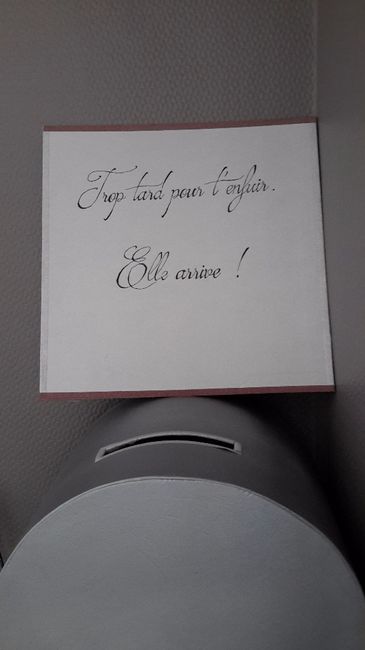 Trop tard pour t'enfuir.
Elle arrive !